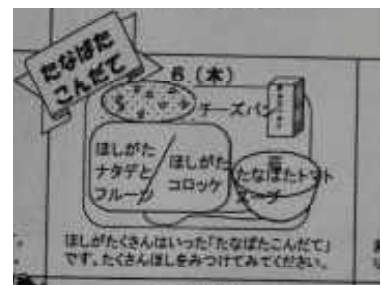 たなばた
こんだて
(木)
チーズパン
ほしがた
ナタデと
フルーツ
ほしがた
コロッケ
たなばたトマト
スープ
ほしがたくさんはいった「たなばたこんだて」
です。たくさんほしをみつけてみてください。